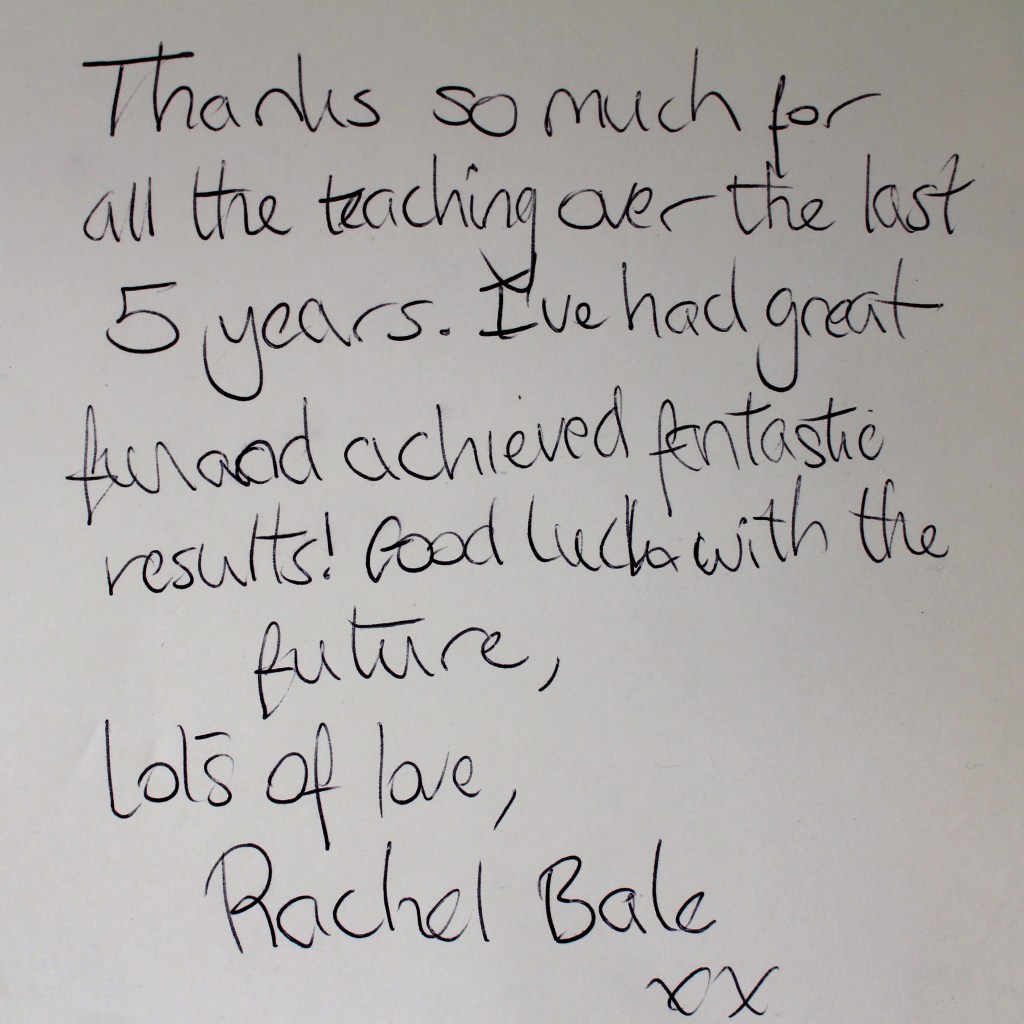 Thanks so much for
all the teaching over the last
5 years. I've had great
fun and achieved fantastic
results! Good luck with the
future,
lots of love,
Rachel Bale
xx